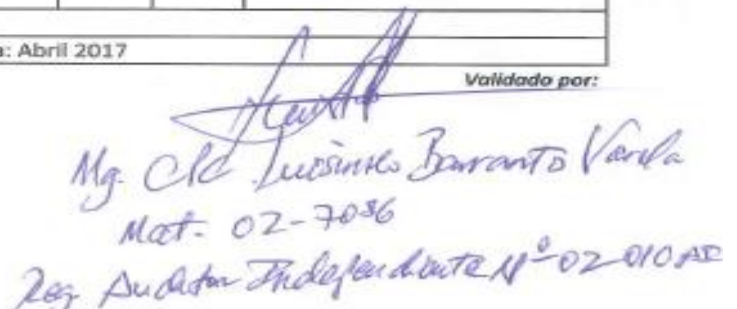 : Abril 2017
Validado por:
Mg. CPC Barranto Varela
Mat. 02-7036
Reg Auditor Independiente Nº 02 010 AI